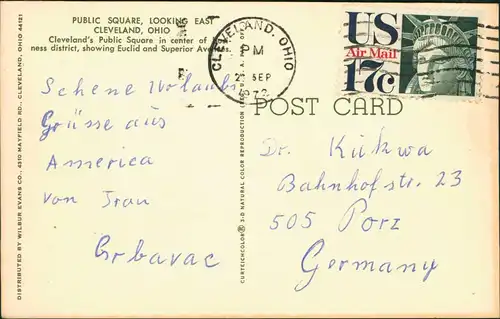 PUBLIC SQUARE, LOOKING EAST
CLEVELAND, OHIO
Cleveland's Public Square in center of
ness district, showing Euclid and Superior Avenues.
CLEVELAND, OHIO
PM
SEP
US
Air Mail
17c
POST CARD
Schene Urlaubs
Grüsse aus
America
von Ivan
Grbavac
Dr. Kukwa
Bahnhofstr. 23
505 Porz
Germany
DISTRIBUTED BY WILBUR EVANS CO., 4510 MAYFIELD RD., CLEVELAND, OHIO 44121
CURTEICHCOLOR® 3-D NATURAL COLOR REPRODUCTION